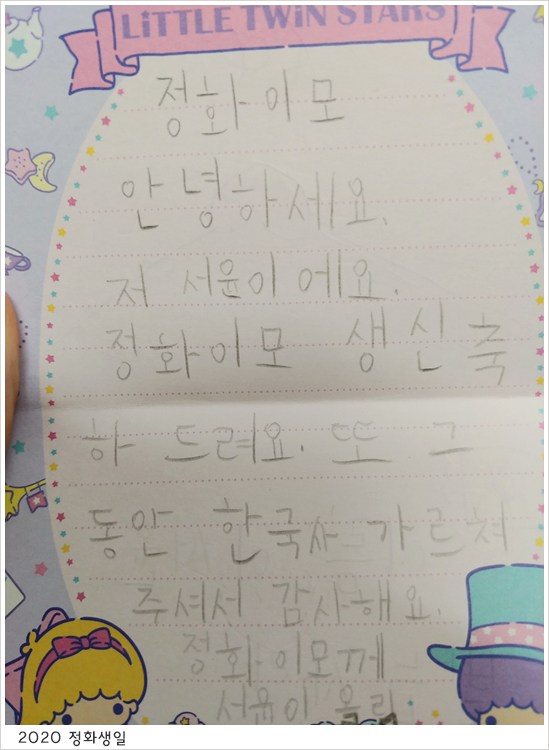 LiTTLE TWiN STARS
정화이모
안녕하세요.
저 서윤이에요.
정화이모 생신축
하 드려요. 또 그
동안 한국사 가르쳐
주셔서 감사해요.
정화이모께
서윤이 올림
2020 정화생일